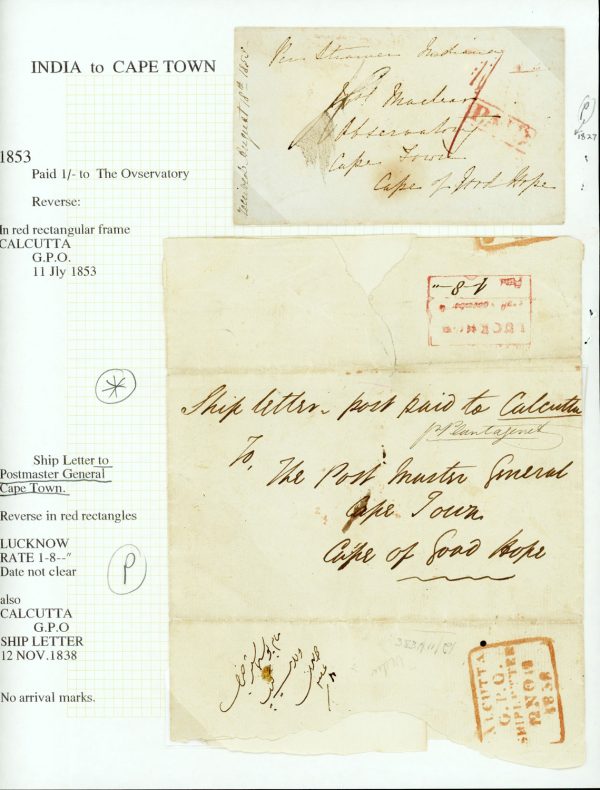 INDIA to CAPE TOWN
1853
Paid 1/- to The Ovservatory
Reverse:
In red rectangular frame
CALCUTTA
G.P.O.
11 Jly 1853
Per Steamer
Received August 18th
Maclear
Observatory
Cape Town
Cape of Good Hope
PAID
P
1827
LUCKNOW
Paid
1-8-"
Ship letter - post paid to Calcutta
p Plantagenet
To,
The Post Master General
Cape Town
Cape of Good Hope
Ship Letter to
Postmaster General
Cape Town.
Reverse in red rectangles
LUCKNOW
RATE 1-8--"
Date not clear
P
also
CALCUTTA
G.P.O
SHIP LETTER
12 NOV.1838
No arrival marks.
CALCUTTA
G.P.O.
SHIP LETTER
12 NO
1838